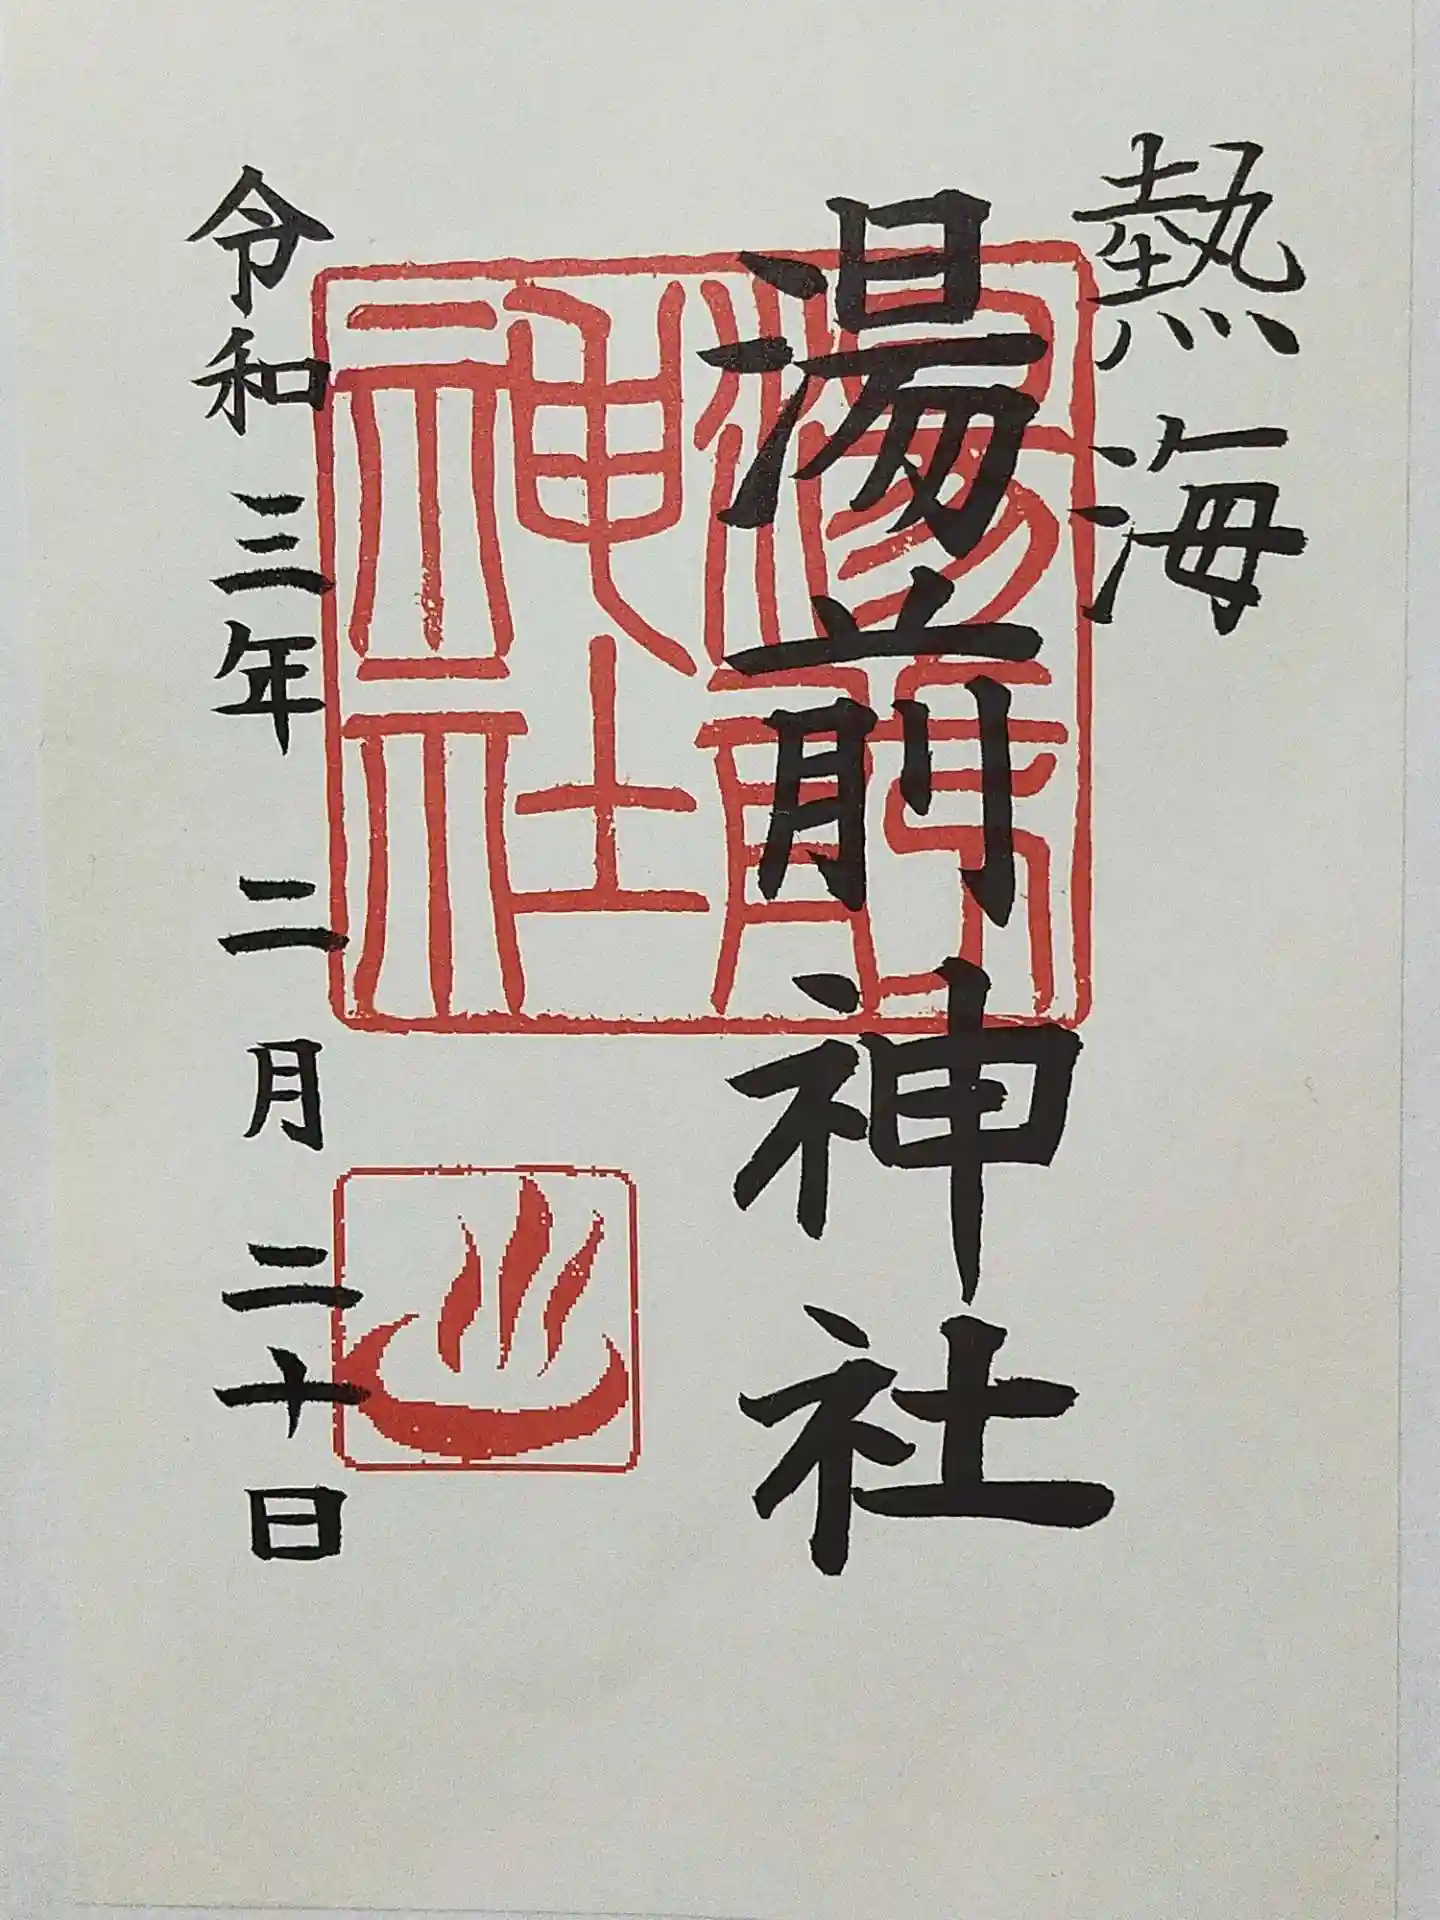 熱海
湯前神社
湯前
神社
令和三年二月二十日